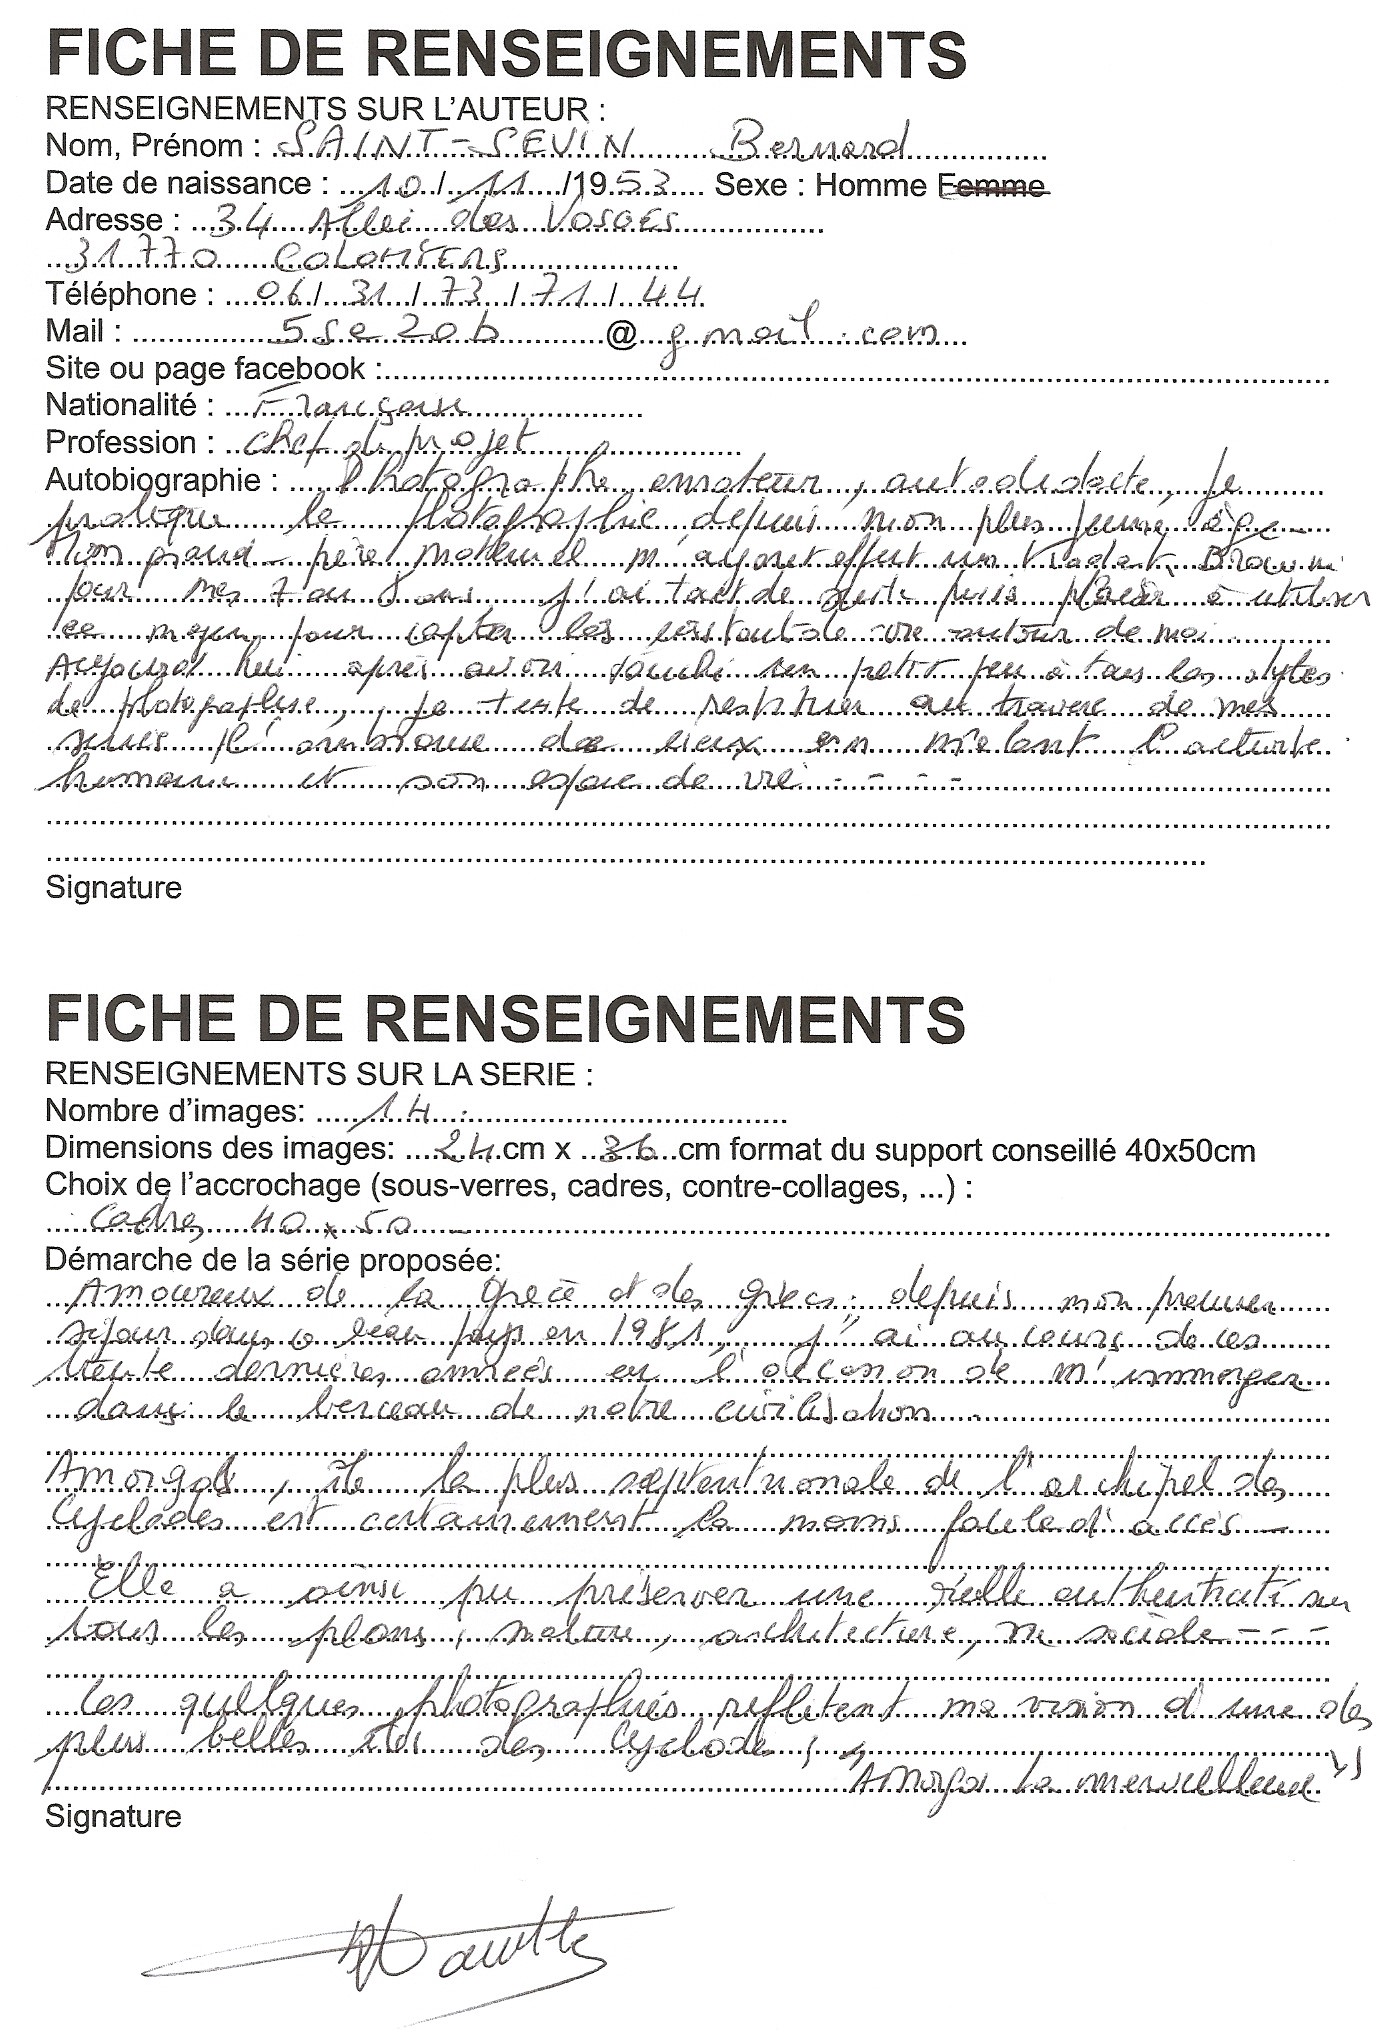 FICHE DE RENSEIGNEMENTS
RENSEIGNEMENTS SUR L'AUTEUR :
Nom, Prénom : SAINT-SEVIN Bernard
Date de naissance : 10 / 11 /1953 Sexe : Homme Femme
Adresse : 34 Allée des VOSGES
31770 COLOMIERS
Téléphone : 06 / 31 / 73 / 71 / 44
Mail : 5se20b @ gmail.com
Site ou page facebook :
Nationalité : Française
Profession : chef de projet
Autobiographie : Photographe amateur, autodidacte, je
pratique la photographie depuis mon plus jeune âge
Mon grand-père maternel m'ayant offert un Brownie
pour mes 7 ou 8 ans j'ai tout de suite pris plaisir à utiliser
ce moyen pour capter les instants de vie autour de moi.
Aujourd'hui après avoir touché un petit peu à tous les styles
de photographie, je tente de restituer au travers de mes
séries l'ambiance des lieux en mêlant l'activité
humaine et son espace de vie - - - -
Signature
FICHE DE RENSEIGNEMENTS
RENSEIGNEMENTS SUR LA SERIE :
Nombre d'images: 14
Dimensions des images: 24 cm x 36 cm format du support conseillé 40x50cm
Choix de l'accrochage (sous-verres, cadres, contre-collages, ...) :
Cadres 40 x 50
Démarche de la série proposée:
Amoureux de la Grèce et des grecs, depuis mon premier
séjour dans ce beau pays en 1981, j'ai au cours de ces
trente dernières années eu l'occasion de m'immerger
dans le berceau de notre civilisation
Amorgos, île la plus septentrionale de l'archipel des
Cyclades est certainement la moins facile d'accès -
Elle a ainsi pu préserver une réelle authenticité sur
tous les plans, nature, architecture, vie sociale - - -
Ces quelques photographies reflètent ma vision d'une des
plus belles îles des Cyclades,
"Amorgos la merveilleuse"
Signature